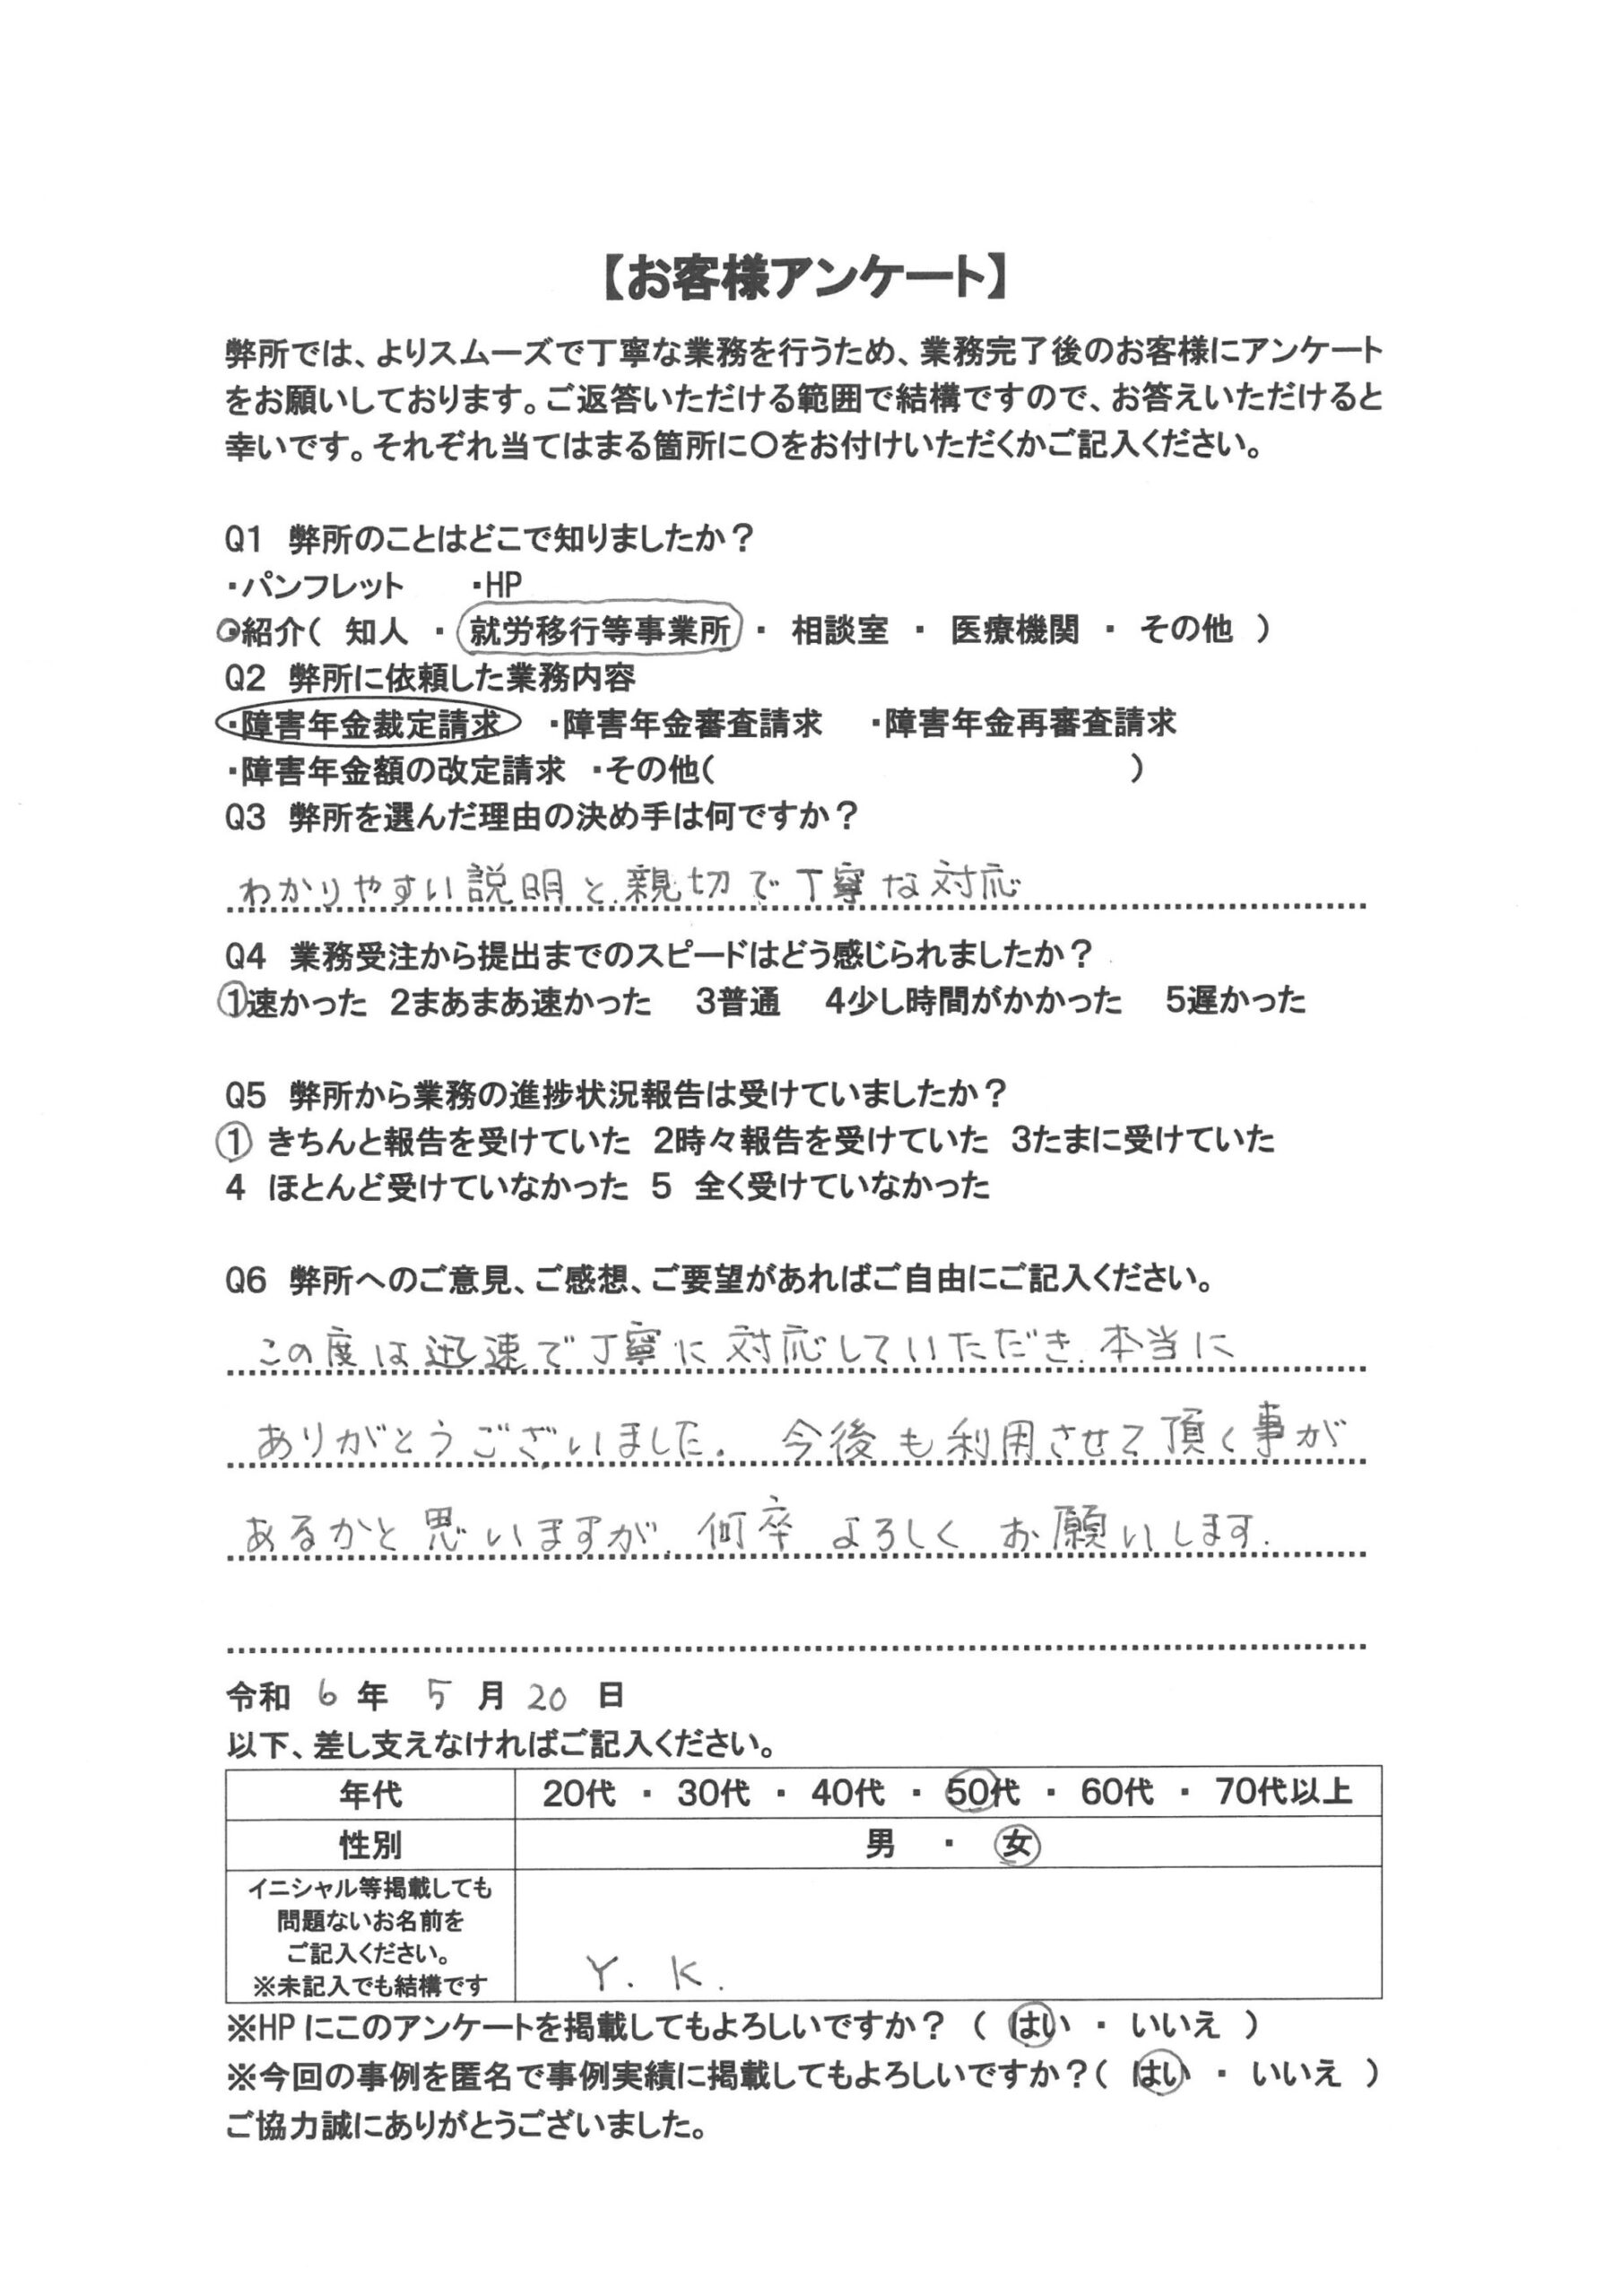 【お客様アンケート】
弊所では、よりスムーズで丁寧な業務を行うため、業務完了後のお客様にアンケート
をお願いしております。ご返答いただける範囲で結構ですので、お答えいただけると
幸いです。それぞれ当てはまる箇所に〇をお付けいただくかご記入ください。
Q1 弊所のことはどこで知りましたか？
・パンフレット ・HP
・紹介（ 知人 ・ 就労移行等事業所 ・ 相談室 ・ 医療機関 ・ その他 ）
Q2 弊所に依頼した業務内容
・障害年金裁定請求 ・障害年金審査請求 ・障害年金再審査請求
・障害年金額の改定請求 ・その他（ ）
Q3 弊所を選んだ理由の決め手は何ですか？
わかりやすい説明と親切で丁寧な対応
Q4 業務受注から提出までのスピードはどう感じられましたか？
1速かった 2まあまあ速かった 3普通 4少し時間がかかった 5遅かった
Q5 弊所から業務の進捗状況報告は受けていましたか？
1 きちんと報告を受けていた 2時々報告を受けていた 3たまに受けていた
4 ほとんど受けていなかった 5 全く受けていなかった
Q6 弊所へのご意見、ご感想、ご要望があればご自由にご記入ください。
この度は迅速で丁寧に対応していただき、本当に
ありがとうございました。 今後も利用させて頂く事が
あるかと思いますが、何卒よろしくお願いします。
令和 6 年 5 月 20 日
以下、差し支えなければご記入ください。
年代 20代 ・ 30代 ・ 40代 ・ 50代 ・ 60代 ・ 70代以上
性別 男 ・ 女
イニシャル等掲載しても
問題ないお名前を
ご記入ください。
※未記入でも結構です
Y. K.
※HPにこのアンケートを掲載してもよろしいですか？（ はい ・ いいえ ）
※今回の事例を匿名で事例実績に掲載してもよろしいですか？（ はい ・ いいえ ）
ご協力誠にありがとうございました。